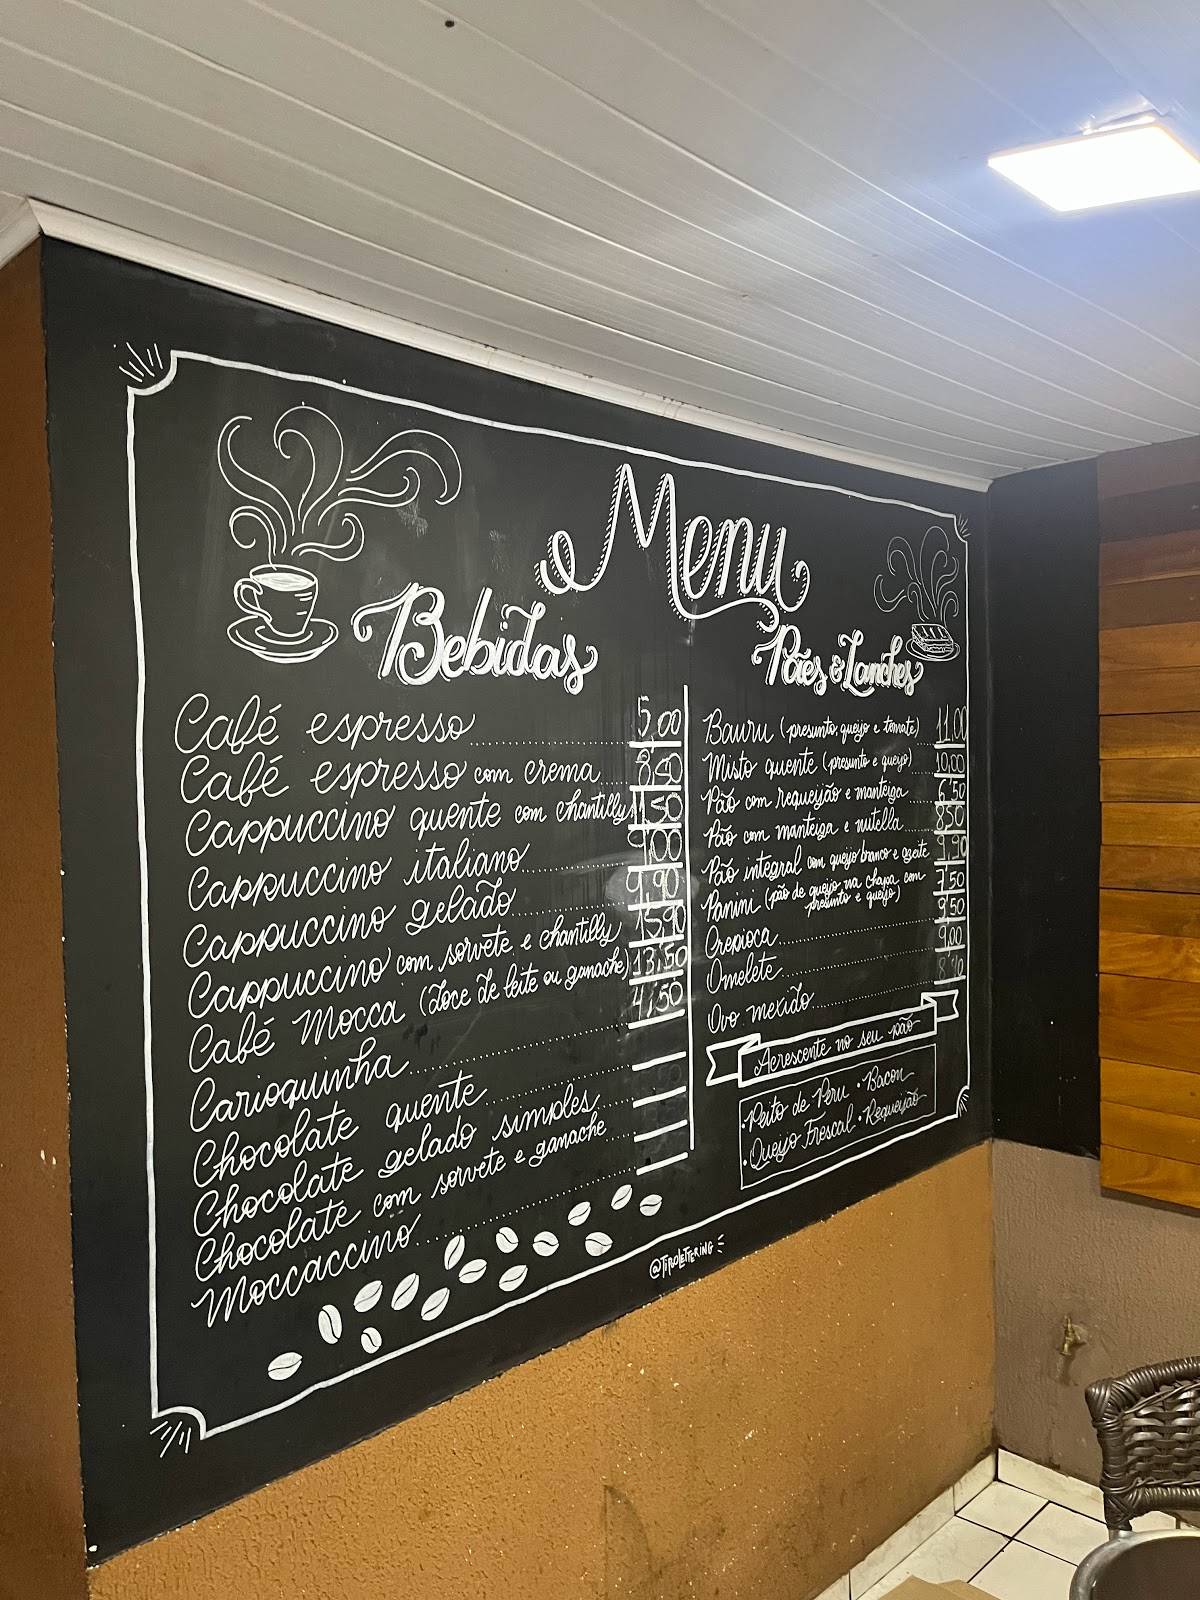 Menu
Bebidas
Café espresso 5,00
Café espresso com crema
Cappuccino quente com chantilly 11,50
Cappuccino italiano 9,00
Cappuccino gelado 9,90
Cappuccino com sorvete e chantilly 15,90
Café Mocca (doce de leite ou ganache) 13,50
Carioquinha 4,50
Chocolate quente
Chocolate gelado simples
Chocolate com sorvete e ganache
Moccaccino
Pães & Lanches
Bauru (presunto, queijo e tomate) 11,00
Misto quente (presunto e queijo) 10,00
Pão com requeijão e manteiga 6,50
Pão com manteiga e nutella 8,50
Pão integral com queijo branco e azeite 9,90
Panini (pão de queijo na chapa com 7,50
presunto e queijo)
Crepioca 9,50
Omelete 9,00
Ovo mexido
Acrescente no seu pão
• Peito de Peru • Bacon
• Queijo Frescal • Requeijão
@TIPOLETTERING